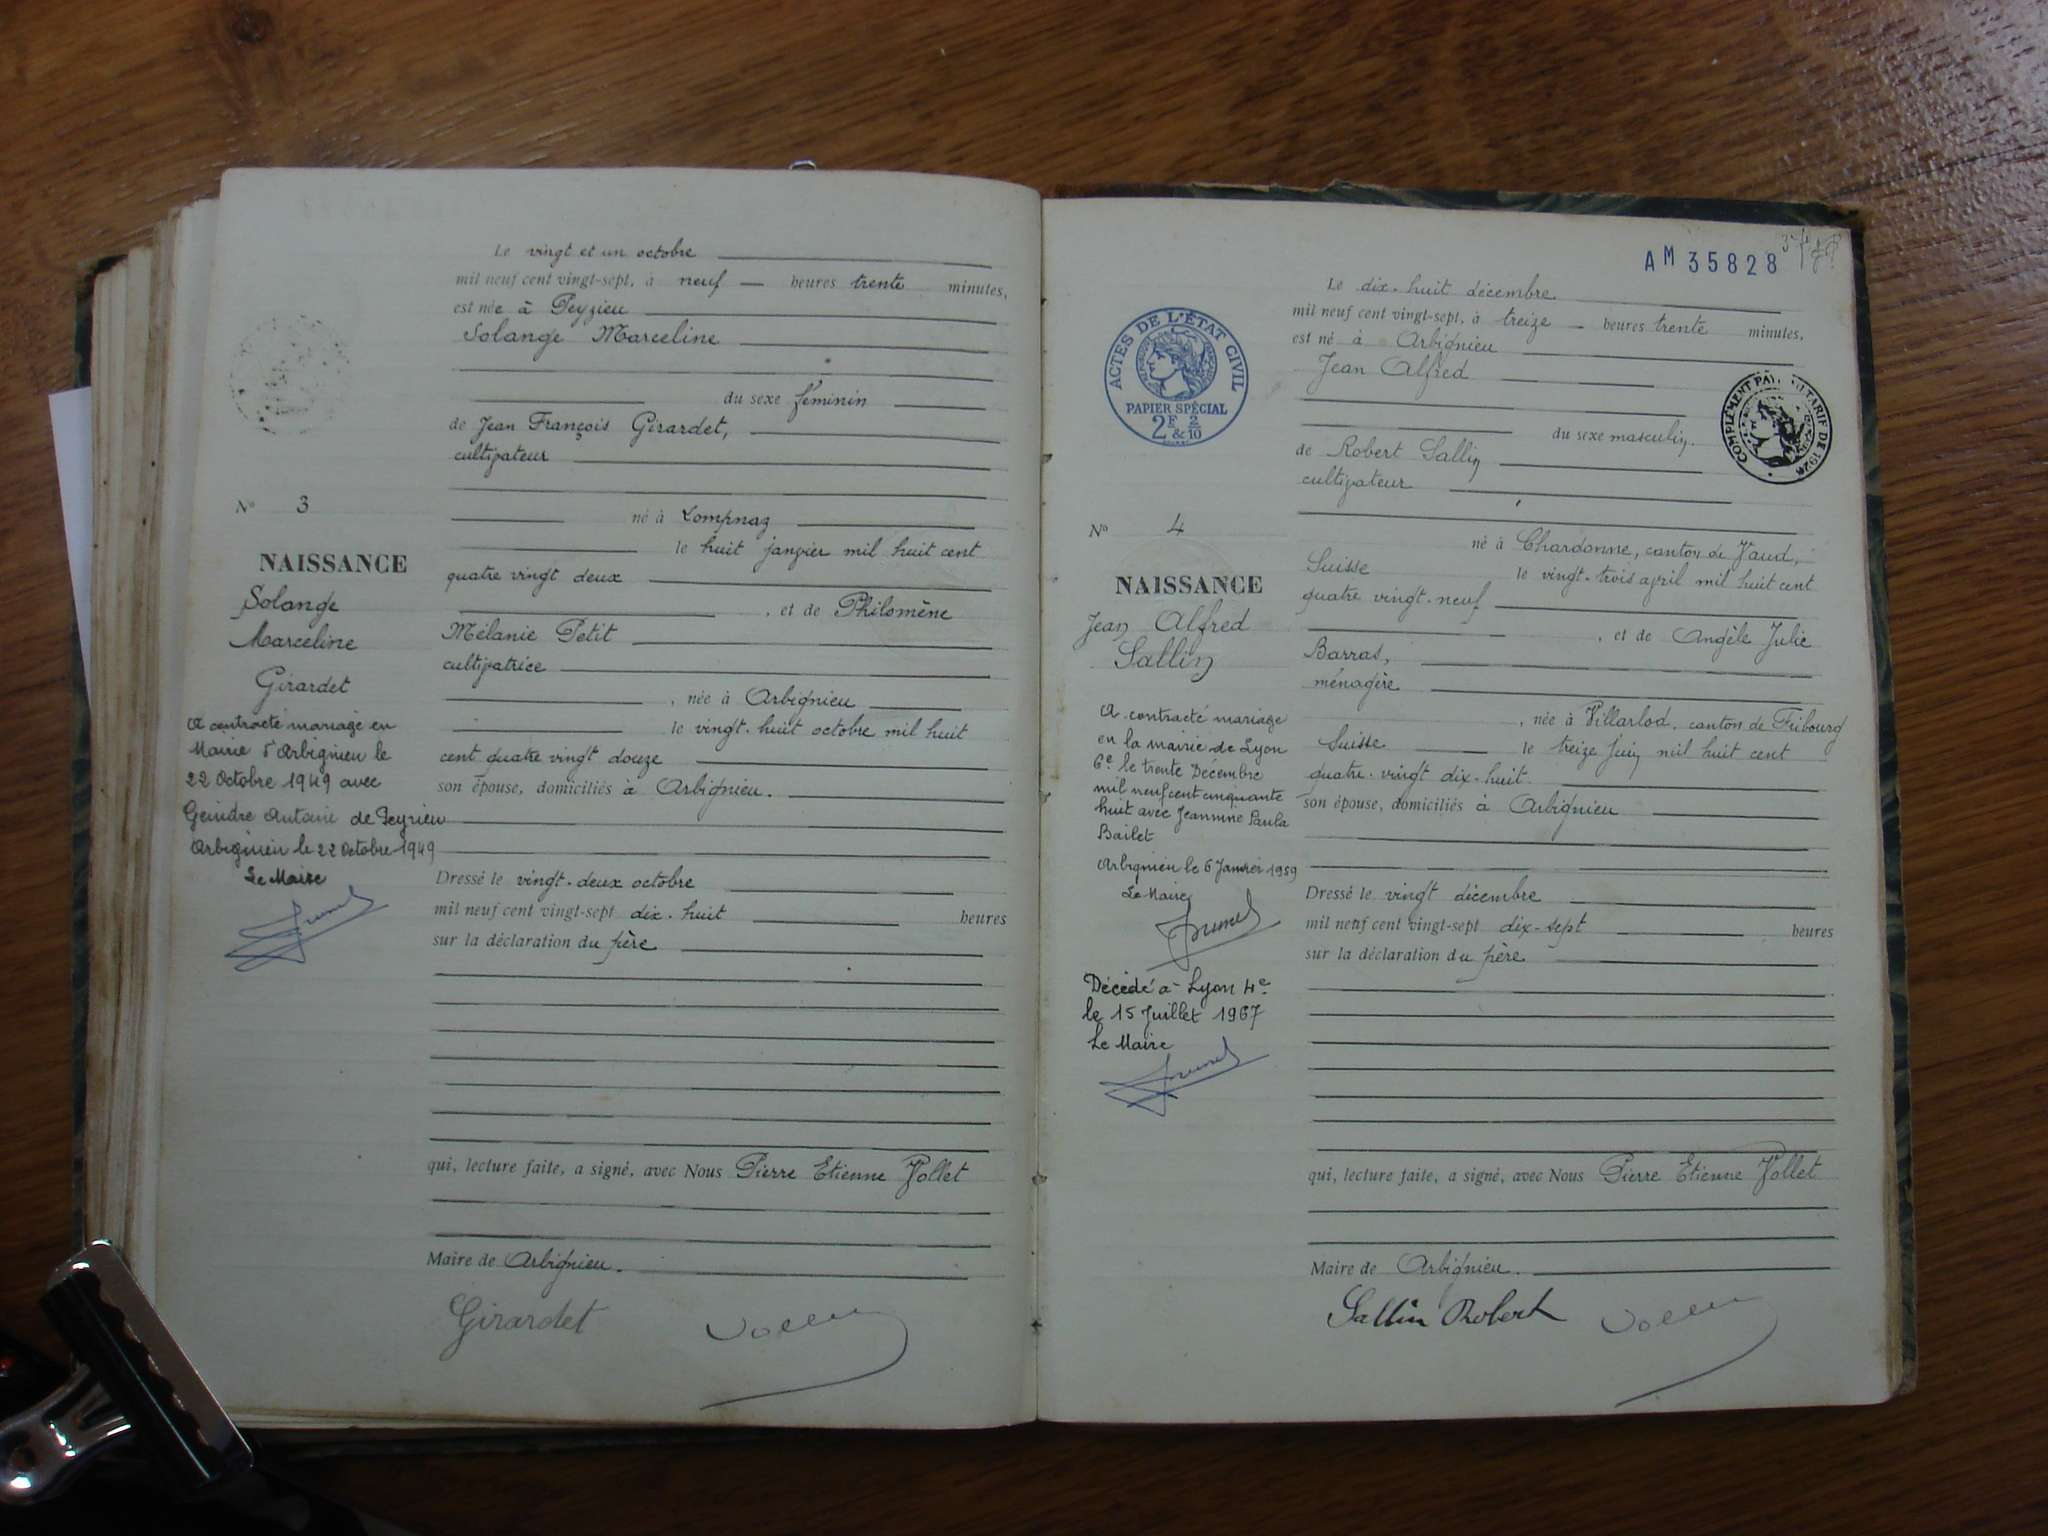 Le vingt et un octobre
mil neuf cent vingt-sept, à neuf heures trente minutes,
est née à Peyzieu
Solange Marceline
du sexe féminin
de Jean François Girardet,
cultivateur
né à Lompnaz
le huit janvier mil huit cent
quatre vingt deux
, et de Philomène
Mélanie Petit
cultivatrice
, née à Arbignieu
le vingt-huit octobre mil huit
cent quatre vingt douze
son épouse, domiciliés à Arbignieu.
Dressé le vingt-deux octobre
mil neuf cent vingt-sept dix-huit heures
sur la déclaration du père
qui, lecture faite, a signé, avec Nous Pierre Etienne Vollet
Maire de Arbignieu.
Girardet
N° 3
NAISSANCE
Solange
Marceline
Girardet
A contracté mariage en
Mairie d'Arbignieu le
22 Octobre 1949 avec
Geindre Antoine de Peyrieu
Arbignieu le 22 Octobre 1949
Le Maire
AM 35828
ACTES DE L'ÉTAT CIVIL
PAPIER SPÉCIAL
2F & 2/10
COMPLÉMENT TARIF DE 1926
Le dix-huit décembre
mil neuf cent vingt-sept, à treize heures trente minutes,
est né à Arbignieu
Jean Alfred
du sexe masculin.
de Robert Sallin
cultivateur
né à Chardonne, canton de Vaud,
Suisse le vingt-trois avril mil huit cent
quatre vingt-neuf
, et de Angèle Julie
Barras,
ménagère
, née à Villarlod, canton de Fribourg
Suisse le treize juin mil huit cent
quatre-vingt dix-huit
son épouse, domiciliés à Arbignieu
Dressé le vingt décembre
mil neuf cent vingt-sept dix-sept heures
sur la déclaration du père
qui, lecture faite, a signé, avec Nous Pierre Etienne Vollet
Maire de Arbignieu.
Sallin Robert
N° 4
NAISSANCE
Jean Alfred
Sallin
A contracté mariage
en la mairie de Lyon
6e le trente Décembre
mil neuf cent cinquante
huit avec Jeannine Paula
Bailet
Arbignieu le 6 Janvier 1959
Le Maire
Décédé à Lyon 4e
le 15 Juillet 1967
Le Maire